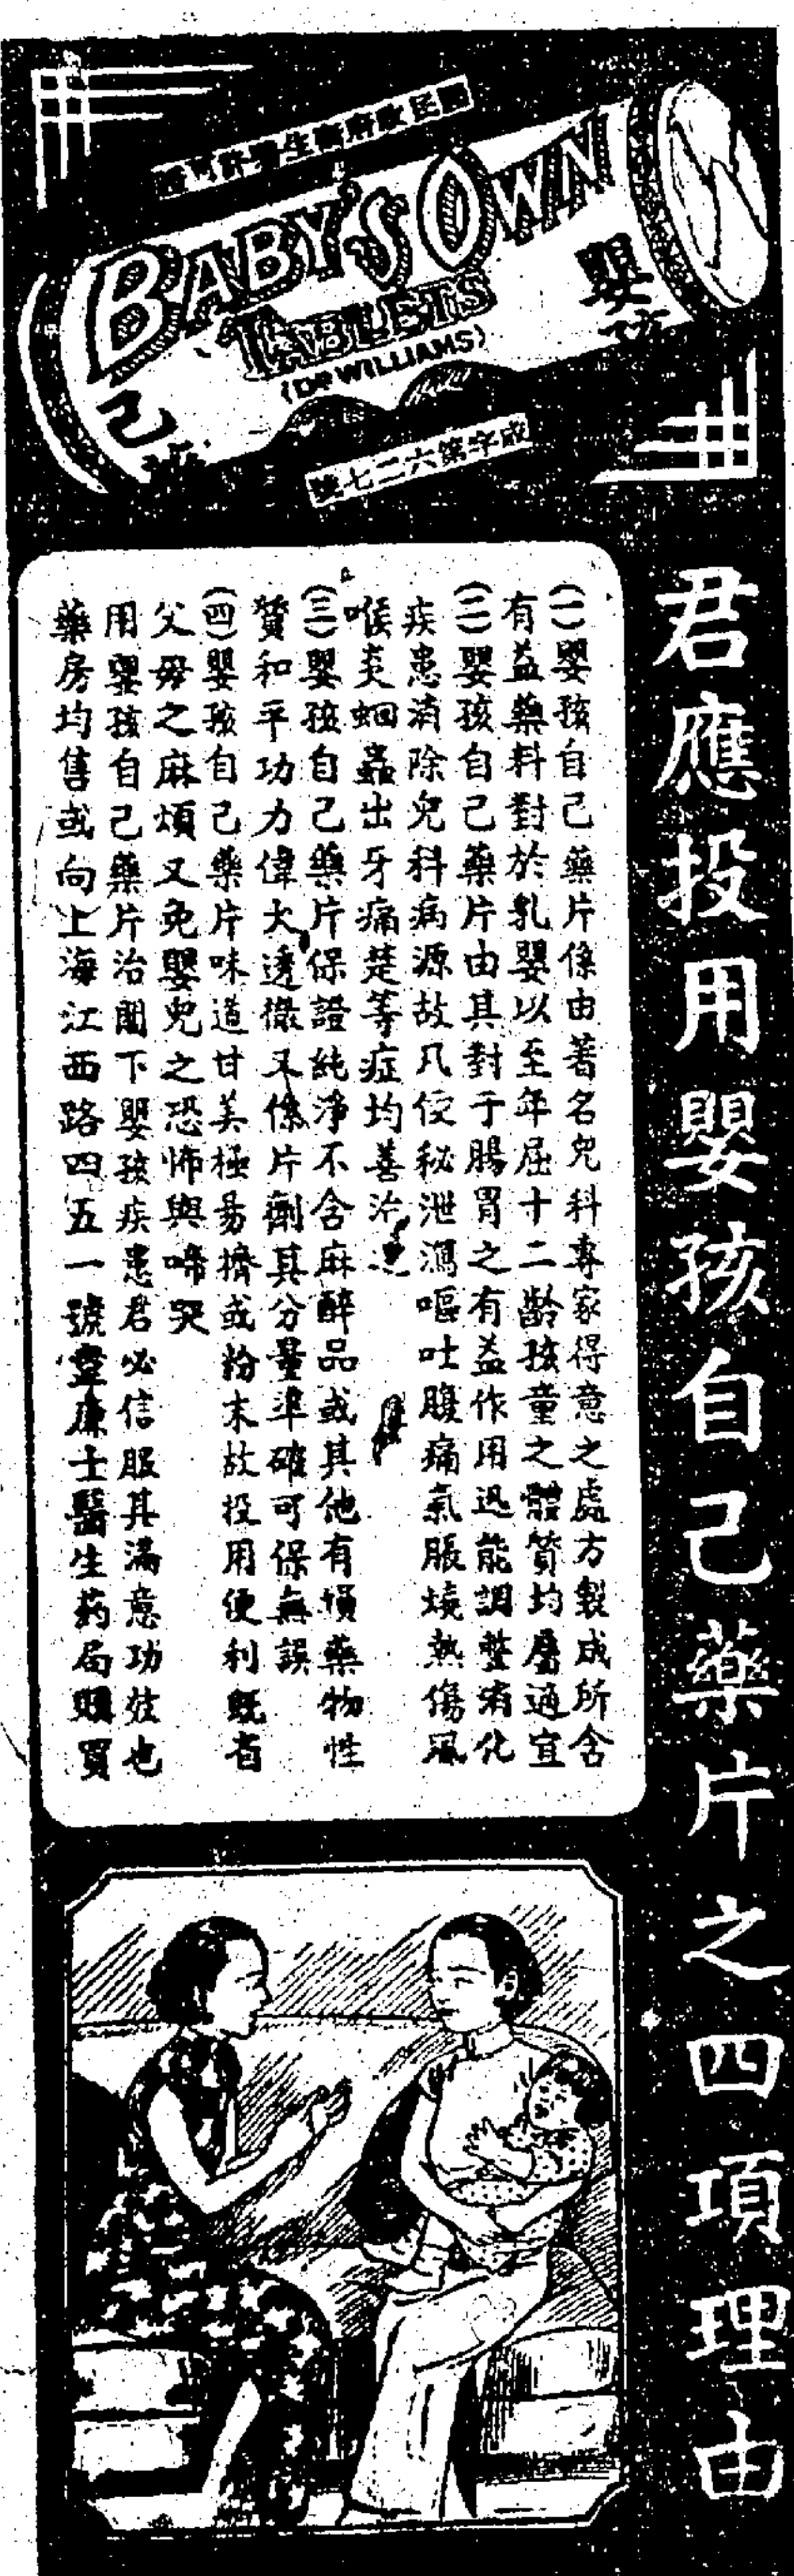 君應投用嬰孩自己藥片之四項理由
國民政府衛生署許可證
BABY'S OWN
TABLETS
(DR WILLIAMS)
嬰孩
己
成字第六二七號
(一)嬰孩自己藥片係由著名兒科專家得意之處方製成所含
有益藥料對於乳嬰以至年屆十二齡孩童之體質均屬適宜
(二)嬰孩自己藥片由其對于腸胃之有益作用迅能調整消化
疾患消除兒科病源故凡便秘泄瀉嘔吐腹痛氣脹燒熱傷風
喉炎蛔蟲出牙痛楚等症均善治之
(三)嬰孩自己藥片保證純淨不含麻醉品或其他有損藥物性
質和平功力偉大透徹又係片劑其分量準確可保無誤
(四)嬰孩自己藥片味道甘美極易擠成粉末故投用便利既省
父母之麻煩又免嬰兒之恐怖與啼哭
用嬰孩自己藥片治閣下嬰孩疾患君必信服其滿意功效也
藥房均售或向上海江西路四五一號韋廉士醫生药局購買